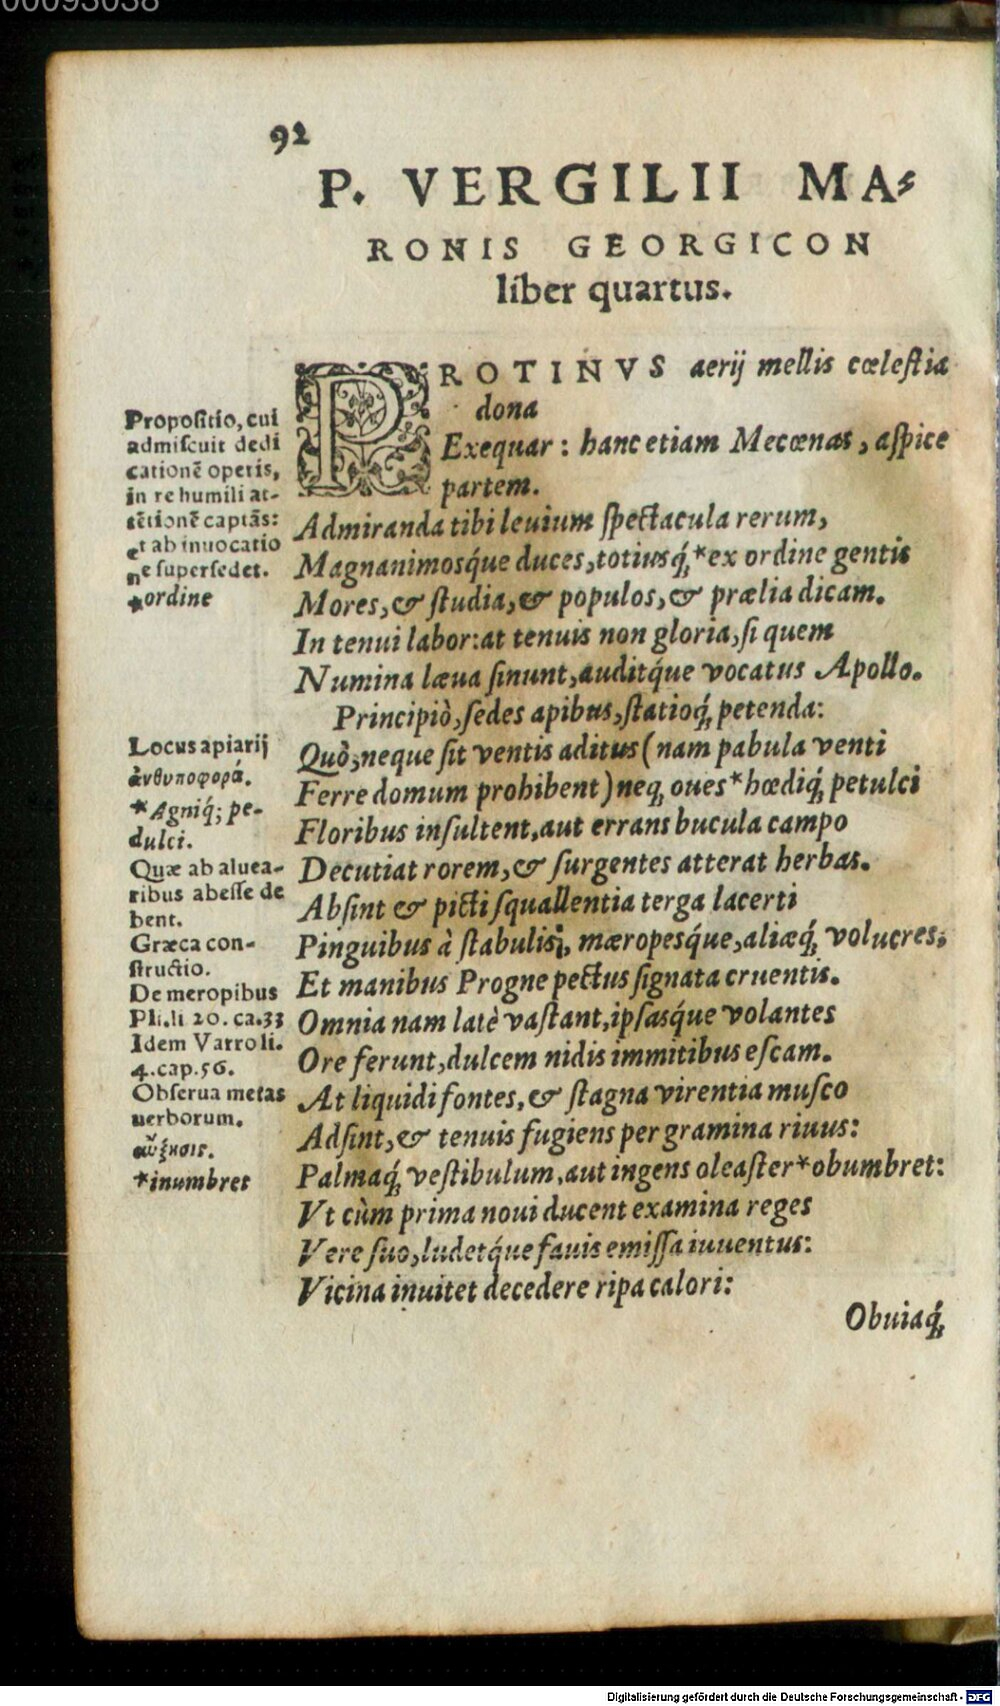 00093038
92
P. VERGILII MA-
RONIS GEORGICON
liber quartus.
PROTINVS aerij mellis cœleſtia
dona
Exequar: hanc etiam Mecœnas, aſpice
partem.
Admiranda tibi leuium ſpectacula rerum,
Magnanimosq́ue duces, totiusq́; *ex ordine gentis
Mores, & ſtudia, & populos, & prælia dicam.
In tenui labor: at tenuis non gloria, ſi quem
Numina læua ſinunt, auditq́ue vocatus Apollo.
Principiò, ſedes apibus, ſtatioq́; petenda:
Quò, neque ſit ventis aditus (nam pabula venti
Ferre domum prohibent) neq; oues *hœdiq́; petulci
Floribus inſultent, aut errans bucula campo
Decutiat rorem, & ſurgentes atterat herbas.
Abſint & picti ſquallentia terga lacerti
Pinguibus à ſtabulis, mæropesq́ue, aliæq́; volucres,
Et manibus Progne pectus ſignata cruentis.
Omnia nam latè vaſtant, ipſasq́ue volantes
Ore ferunt, dulcem nidis immitibus eſcam.
At liquidi fontes, & ſtagna virentia muſco
Adſint, & tenuis fugiens per gramina riuus:
Palmaq́; veſtibulum, aut ingens oleaſter *obumbret:
Vt cùm prima noui ducent examina reges
Vere ſuo, ludetq́ue fauis emiſſa iuuentus:
Vicina inuitet decedere ripa calori:
Obuiaq́;
Propoſitio, cui
admiſcuit dedi
cationē operis,
in re humili at-
tētionē captās:
et ab inuocatio
ne ſuperſedet.
*ordine
Locus apiarij
ἀνθυποφορά.
*Agniq́; pe-
dulci.
Quæ ab aluea-
ribus abeſſe de
bent.
Græca con-
ſtructio.
De meropibus
Pli.li 20. ca.33
Idem Varro li.
4.cap.56.
Obſerua metas
uerborum.
αὔξησις.
*inumbret
Digitalisierung gefördert durch die Deutsche Forschungsgemeinschaft - DFG